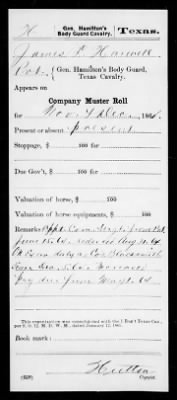 H
Gen. Hamilton's
Body Guard Cavalry.
Texas.
James F. Harwell
Pvt.
Gen. Hamilton's Body Guard,
Texas Cavalry.
Appears on
Company Muster Roll
for Nov. & Dec., 1864.
Present or absent present
Stoppage, $ 100
Due Gov't, $ 100
Valuation of horse, $ 100
Valuation of horse equipments, $ 100
Remarks: Appt. Com. Sergt. from Pvt.
June 15. 64. reduced Aug.
On Extra duty as Co. Blacksmith
from
Pay due from
This organization subsequently with the 1 Reg't Texas Cav.,
Book mark:
Hutton
Copyist.